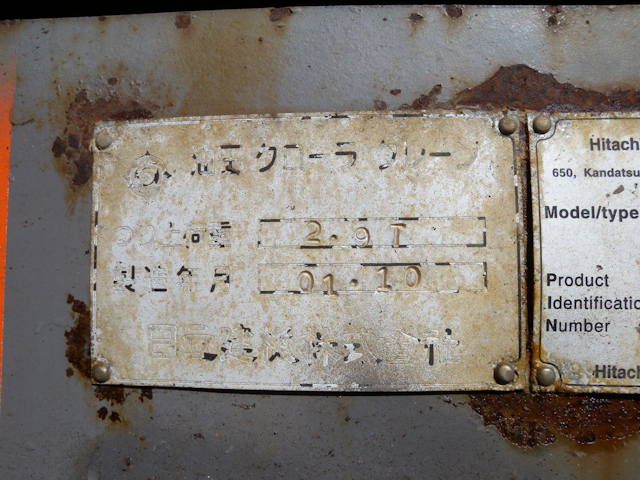 油圧クローラクレーン
つり上荷重 2.9T
製造年月 01.10
日立建機株式会社
Hitach
650, Kandatsu
Model/type
Product
Identificatio
Number
Hitach